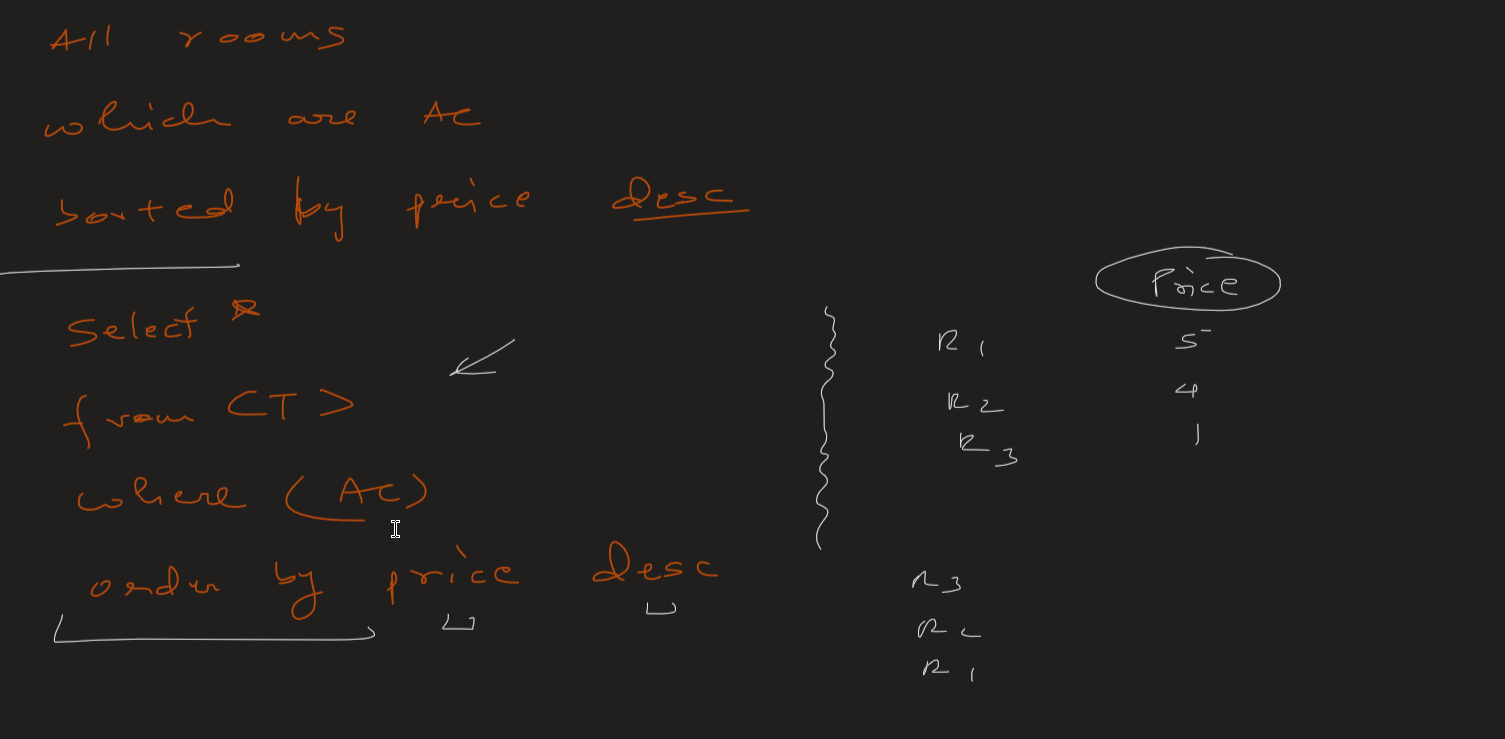 All rooms
which are AC
sorted by price desc
Select *
from <T>
where (AC)
order by price desc
Price
R1 5
R2 4
R3 1
R3
R2
R1